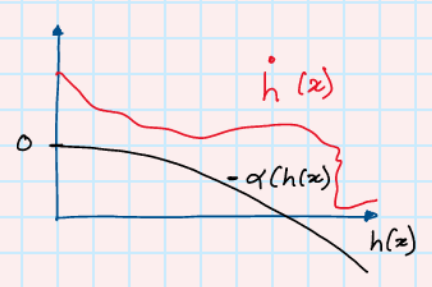 ḣ(x)
0
-α(h(x))
h(x)